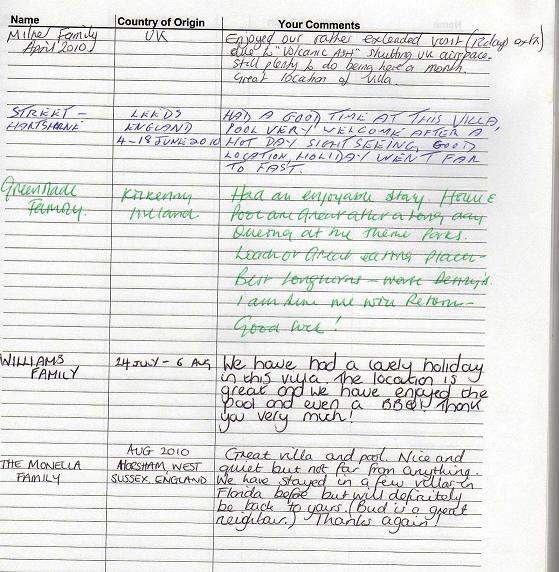 Name Country of Origin Your Comments
Milnel Family UK Enjoyed our rather extended visit (12 days extra)
April 2010 due to "VOLCANIC ASH" shutting UK airspace.
still plenty to do being here a month.
Great location of Villa.
STREET - LEEDS HAD A GOOD TIME AT THIS VILLA,
HARTSHORNE ENGLAND POOL VERY WELCOME AFTER A
4-18 JUNE 2010 HOT DAY SIGHT SEEING, GOOD
LOCATION, HOLIDAY WENT FAR
TO FAST.
Kilkenny Had an enjoyable stay. House
Family. Ireland Pool are Great after a long day
Queing at the Theme Parks.
of Great eating places-
Best Longhorns - worst Denny's.
I am sure we will Return-
Good Luck!
WILLIAMS 24 JULY - 6 AUG We have had a lovely holiday
FAMILY in this villa. The location is
great and we have enjoyed the
pool and even a BBQ! Thank
you very much!
AUG 2010 Great villa and pool. Nice and
THE MONELLA HORSHAM, WEST quiet but not far from anything.
FAMILY SUSSEX, ENGLAND We have stayed in a few villas in
Florida before but will definitely
be back to yours. (Bud is a great
neighbour.) Thanks again!